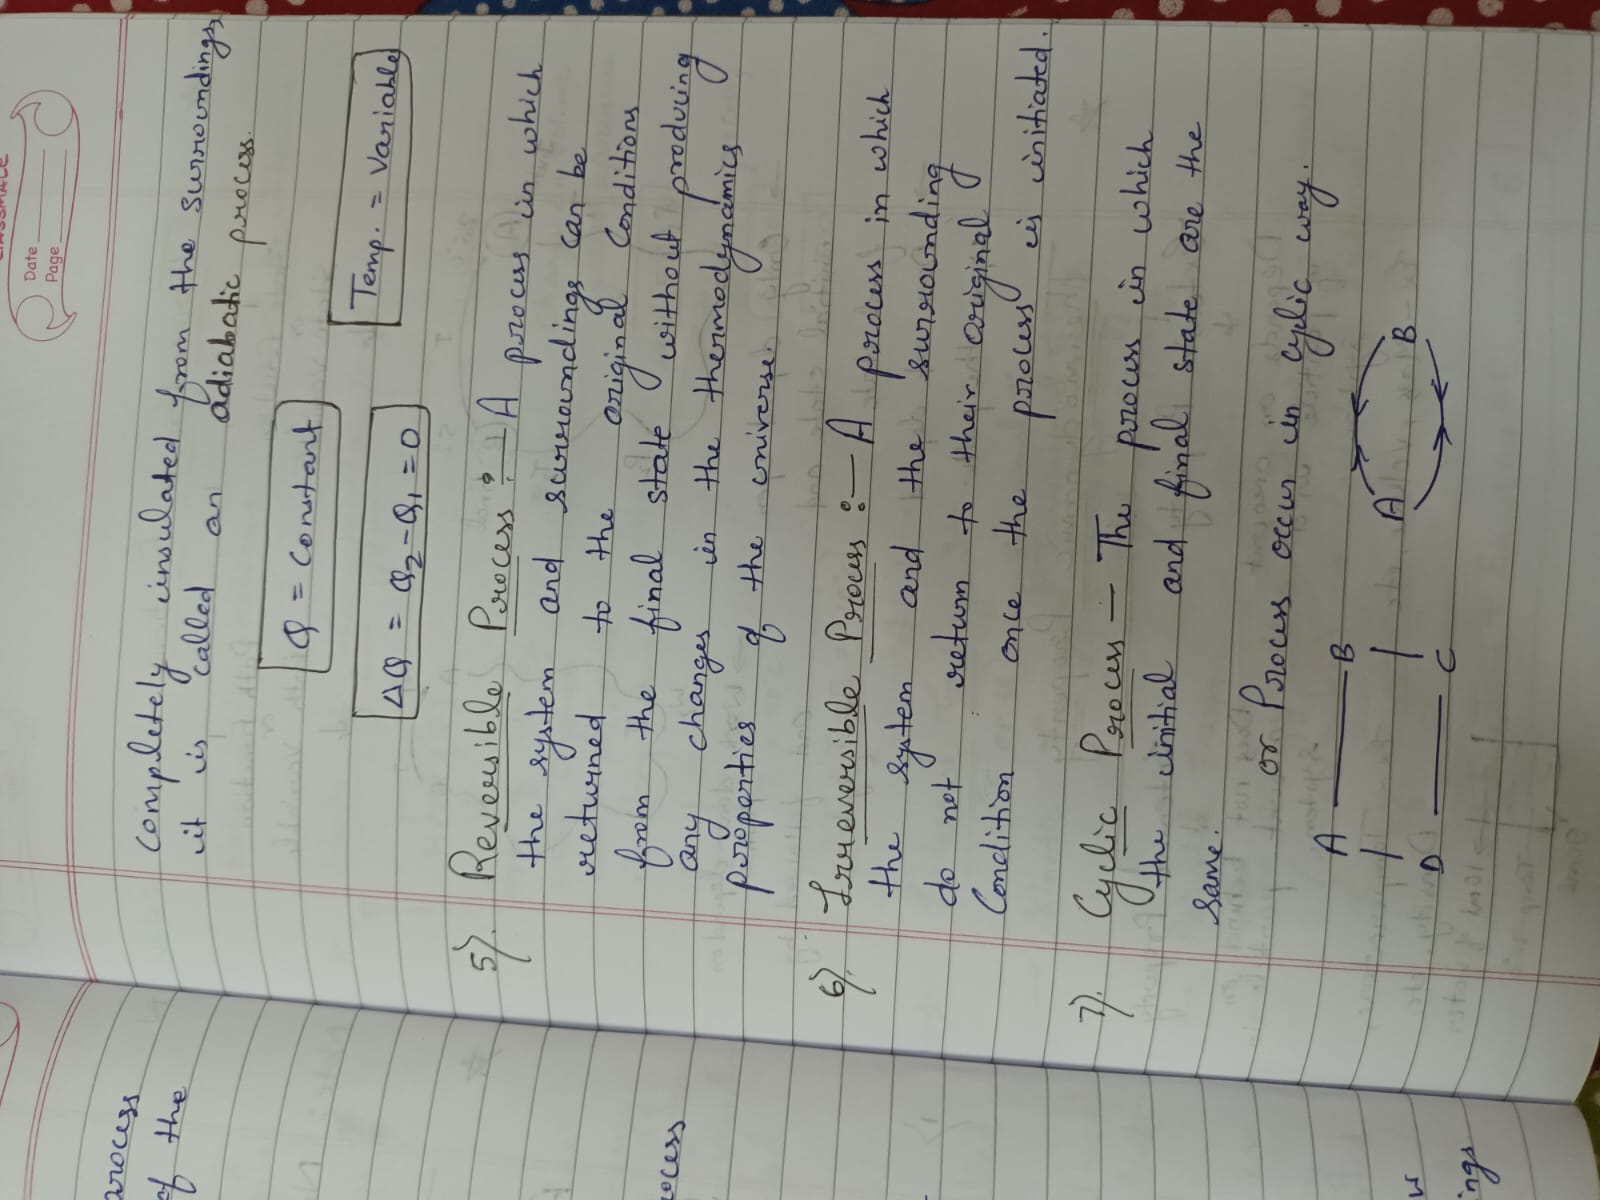 CLASSMATE
Date
Page
completely insulated from the surroundings,
it is called an adiabatic process.
Q = Constant
Temp. = Variable
ΔQ = Q2 - Q1 = 0
5). Reversible Process :- A process in which
the system and surroundings can be
returned to the original Conditions
from the final state without producing
any changes in the thermodynamics
properties of the universe.
6). Irreversible Process :- A process in which
the system and the surrounding
do not return to their original
Condition once the process is initiated.
7). Cyclic Process - The process in which
the initial and final state are the
same.
or Process occur in cylic way.
A B
D C
A B
process
of the
ocess
ngs